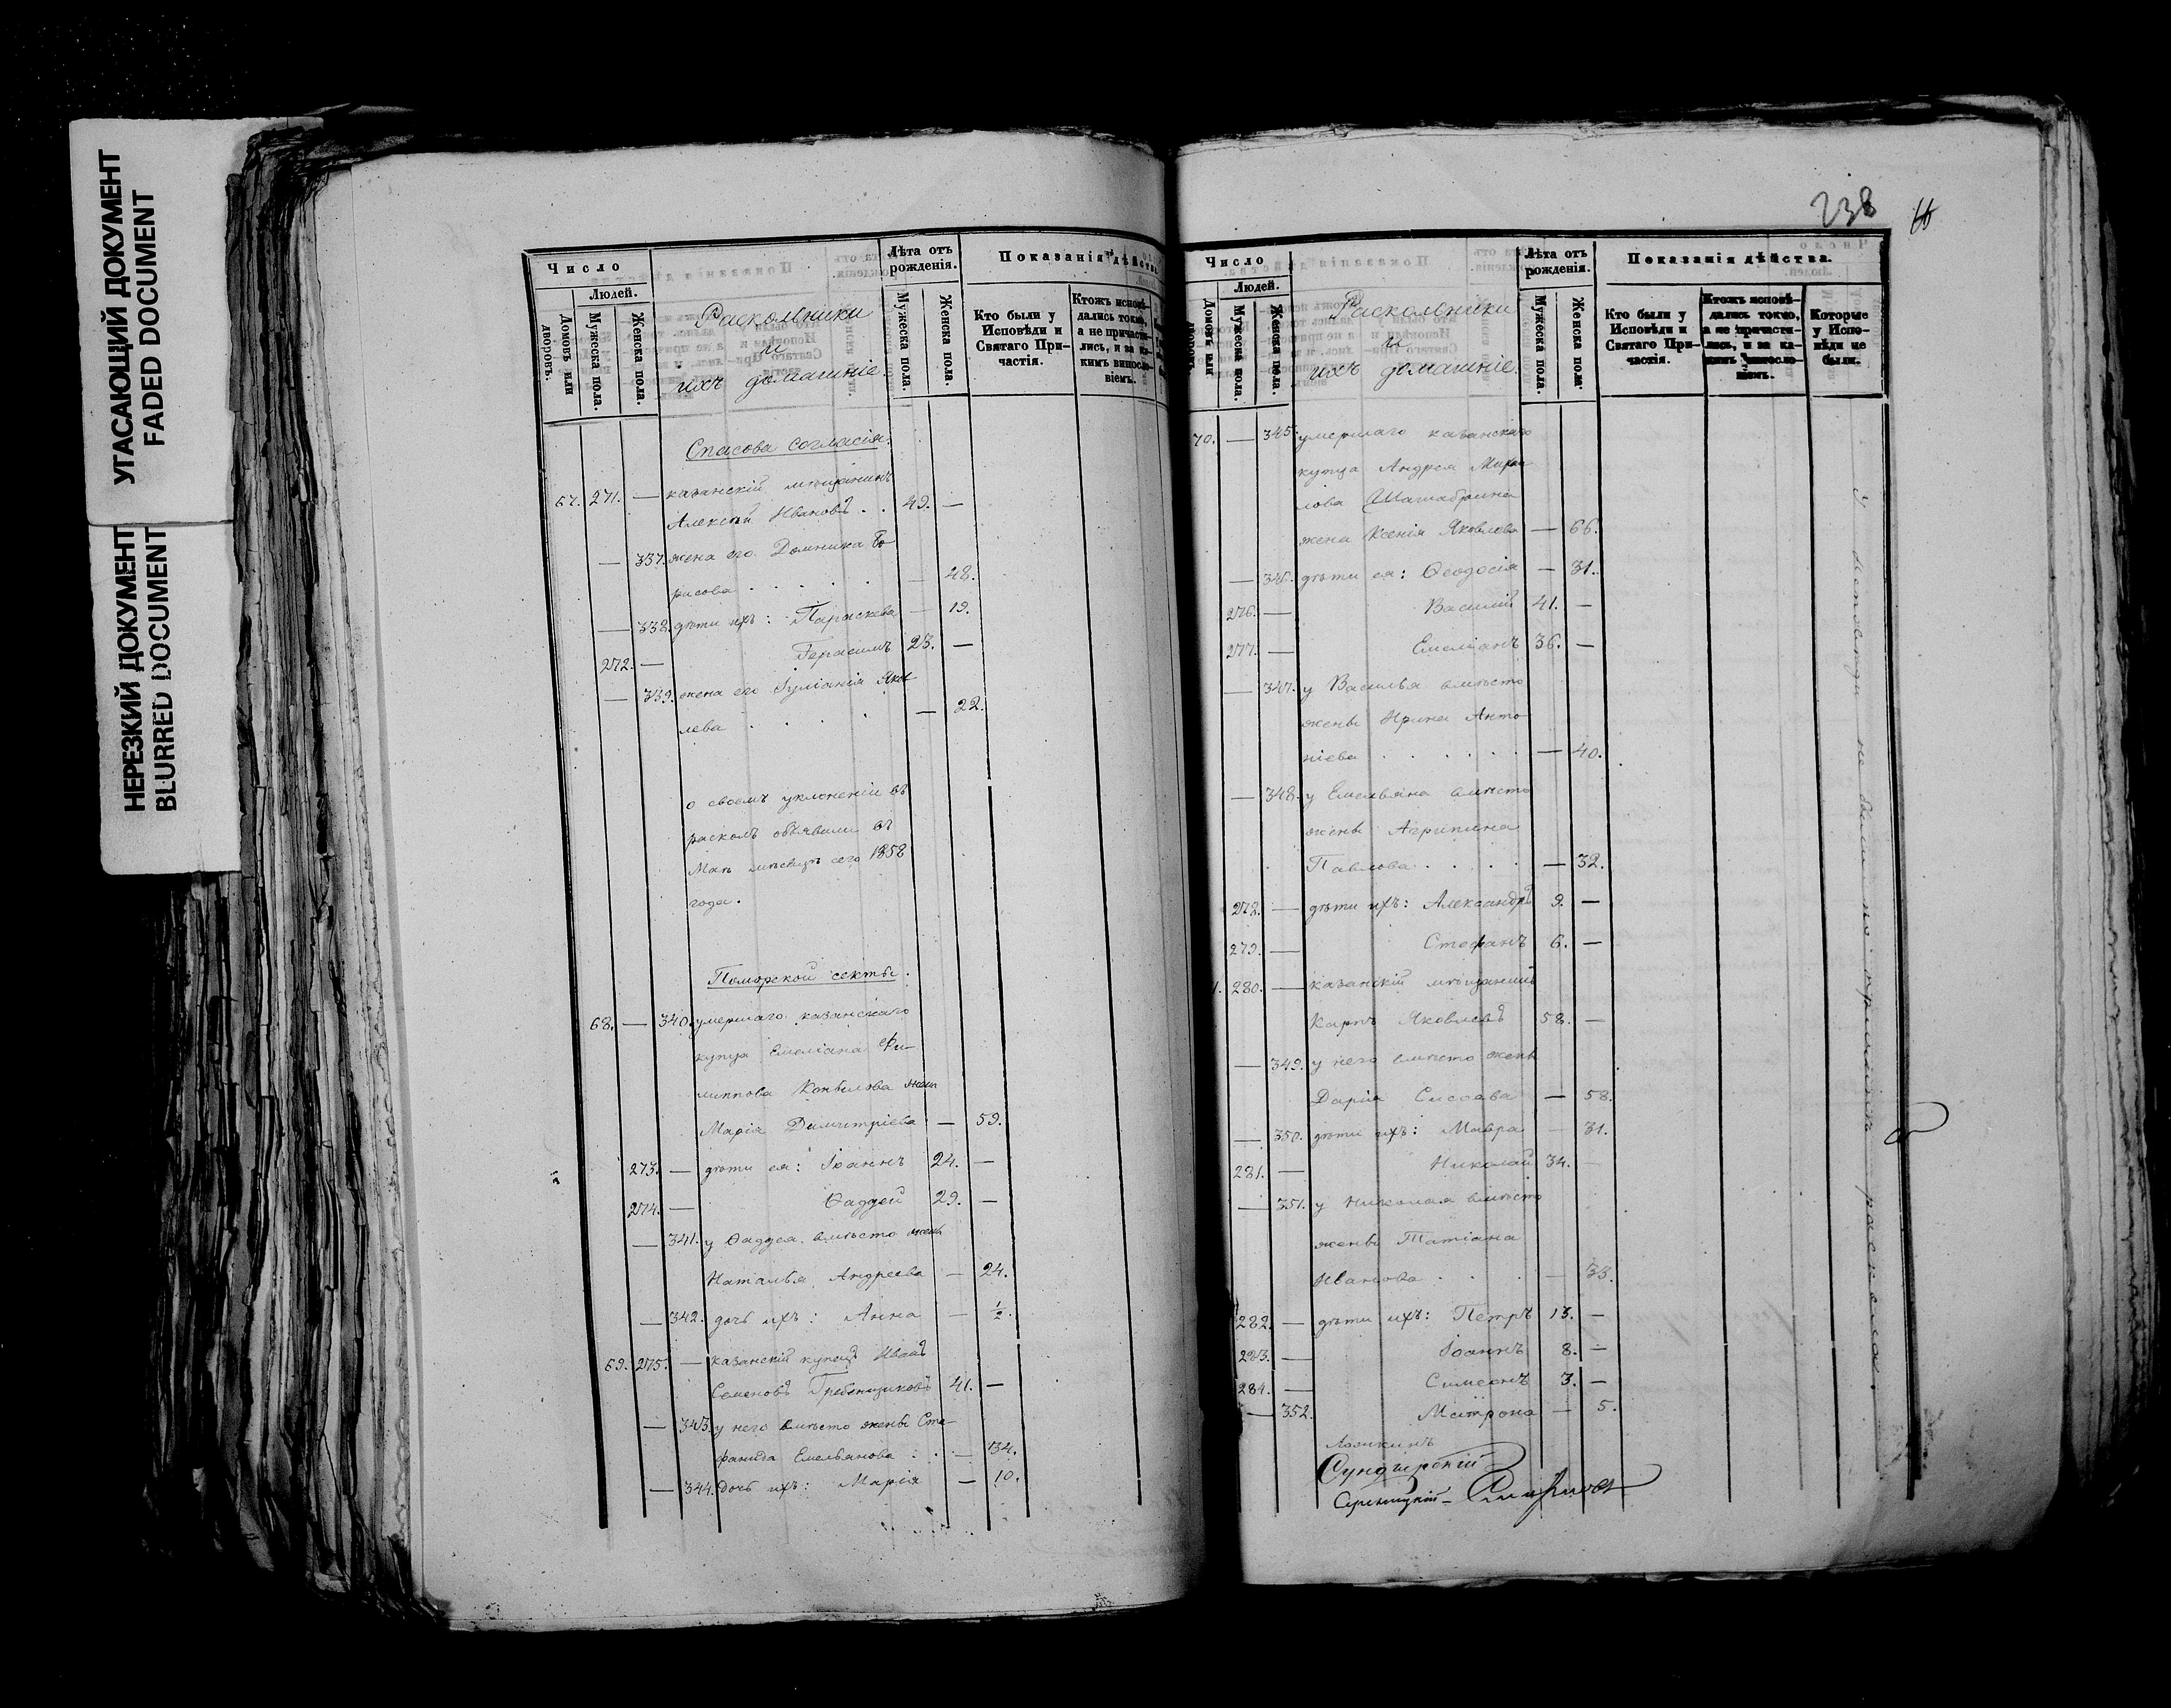 УГАСАЮЩИЙ ДОКУМЕНТ
FADED DOCUMENT
НЕРЕЗКИЙ ДОКУМЕНТ
BLURRED DOCUMENT
Число
Людей.
Домовъ или дворовъ.
Мужеска пола.
Женска пола.
Раскольники
и
ихъ домашніе.
Лѣта отъ рожденія.
Мужеска пола.
Женска пола.
Показанія дѣйства
Кто были у Исповѣди и Святаго Причастія.
Ктожъ исповѣдались токмо, а не причастились, и за какимъ винословіемъ.
Спасова согласія.
67. 271. — казанскій мѣщанинъ
Алексѣй Ивановъ . . 49. —
— 337. жена его Домника Бо
рисова . . . . — 48.
— 338. дѣти ихъ: Параскева — 19.
272. — Герасимъ 23. —
— 339. жена его Іуліанія Яков
лева . . . — 22.
о своемъ уклоненіи въ
расколъ объявили въ
Маѣ мѣсяцѣ сего 1858
года.
Поморской секты.
68. — 340. умершаго казанскаго
купца Емеліана Фи–
липпова жена
Марія Димитріева — 59.
273. — дѣти ея: Іоаннъ 24. —
274. — Ѳаддей 29. —
— 341. у Ѳаддея вмѣсто жены
Наталья Андреева — 24.
— 342. дочь ихъ: Анна — ½.
69. 275. — казанскій купецъ Иванъ
Семеновъ Гребенщиковъ 41. —
— 343. у него вмѣсто жены Сте–
фанида Емельянова . . — 34.
— 344. дочь ихъ: Марія — 10.
238
Число
Людей.
Домовъ или
Мужеска пола.
Женска пола.
Раскольники
и
ихъ домашніе.
Лѣта отъ рожденія.
Мужеска пола.
Женска пола.
Показанія дѣйства.
Кто были у Исповѣди и Святаго Причастія.
Ктожъ исповѣдались токмо, а не причастились, и за какимъ винословіемъ.
Которые у Исповѣди не были.
70. — 345. умершаго казанскаго
купца Андрея Михаи
лова
жена Ксенія Яковлева — 66.
— 346. дѣти ея: Ѳеодосія — 31.
276. — Василій 41. —
277. — Емеліанъ 36. —
— 347. у Василья вмѣсто
жены Ирина Анто
ніева . . . . . — 40.
— 348. у Емельяна вмѣсто
жены Агрипина
Павлова . . . . — 32.
278. — дѣти ихъ: Александръ 9. —
279. — Стефанъ 6. —
1. 280. — казанскій мѣщанинъ
Карпъ Яковлевъ 58. —
— 349. у него вмѣсто жены
Дарія — 58.
— 350. дѣти ихъ: Мавра — 31.
281. — Николай 34. —
— 351. у Николая вмѣсто
жены Татіана
Иванова . . . — 33.
282. — дѣти ихъ: Петръ 13. —
283. — Іоаннъ 8. —
284. — Симеонъ 3. —
— 352. Матрона — 5.
У исповѣди не были по причинѣ раскола.